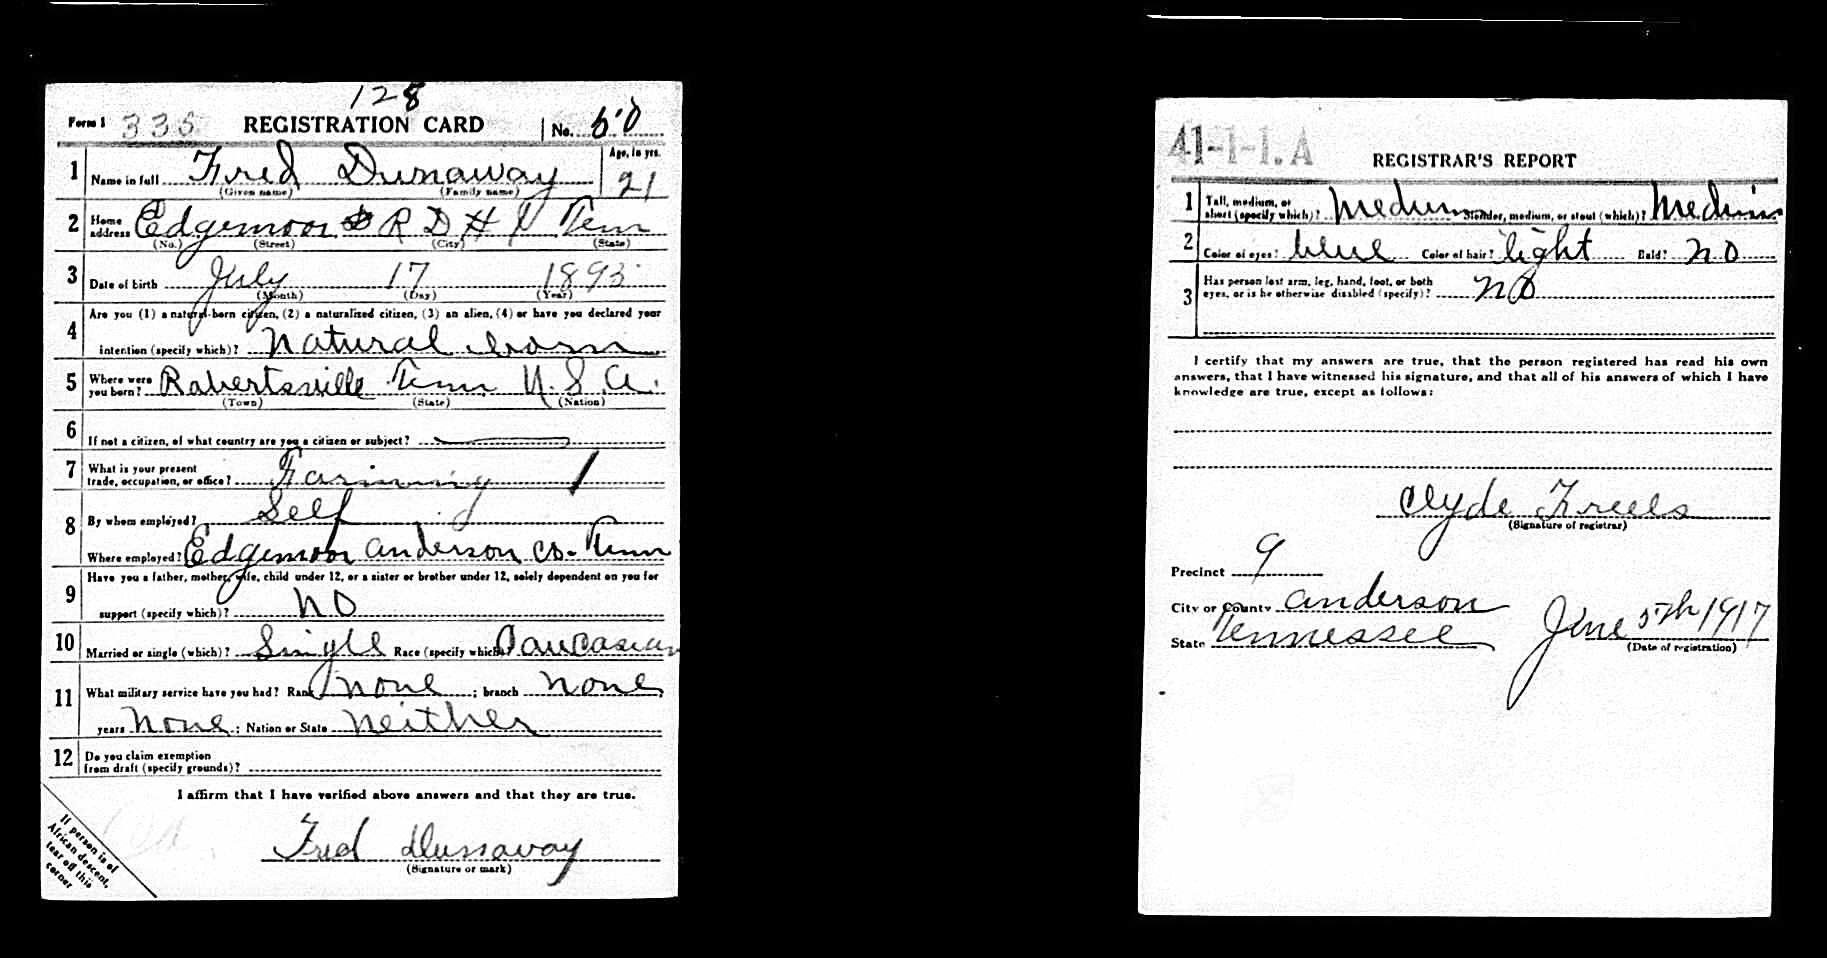 128
Form 1 335 REGISTRATION CARD No. 50
1 Name in full Fred Dunaway Age, in yrs. 21
(Given name) (Family name)
2 Home address Edgemoor R D # Tenn
(No.) (Street) (City) (State)
3 Date of birth July 17 1893
(Month) (Day) (Year)
4 Are you (1) a natural-born citizen, (2) a naturalized citizen, (3) an alien, (4) or have you declared your
intention (specify which)? Natural born
5 Where were you born? Robertsville Tenn U.S.A.
(Town) (State) (Nation)
6 If not a citizen, of what country are you a citizen or subject?
7 What is your present trade, occupation, or office? Farming
8 By whom employed? Self
Where employed? Edgemoor Anderson Co. Tenn
9 Have you a father, mother, wife, child under 12, or a sister or brother under 12, solely dependent on you for
support (specify which)? No
10 Married or single (which)? Single Race (specify which)? Caucasian
11 What military service have you had? Rank none ; branch none
years none ; Nation or State neither
12 Do you claim exemption from draft (specify grounds)?
I affirm that I have verified above answers and that they are true.
Fred Dunaway
(Signature or mark)
If person is of
African descent,
tear off this
corner
41-1-1. A
REGISTRAR'S REPORT
1 Tall, medium, or short (specify which)? Medium Slender, medium, or stout (which)? Medium
2 Color of eyes? blue Color of hair? light Bald? no
3 Has person lost arm, leg, hand, foot, or both eyes, or is he otherwise disabled (specify)? no
I certify that my answers are true, that the person registered has read his own
answers, that I have witnessed his signature, and that all of his answers of which I have
knowledge are true, except as follows:
Clyde Freels
(Signature of registrar)
Precinct 9
City or County Anderson
State Tennessee June 5th 1917
(Date of registration)